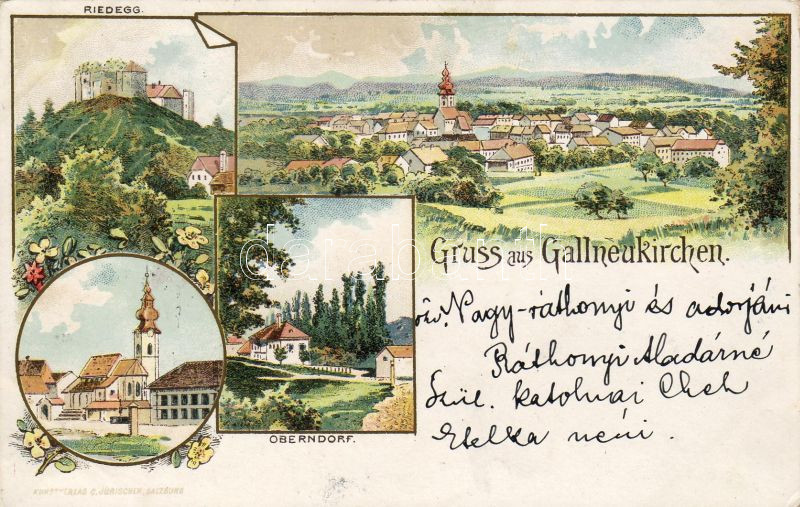 RIEDEGG.
Gruss aus Gallneukirchen.
özv. Nagy-ráthonyi és adorjáni
Ráthonyi Aladárné
Szül. katolnai Cseh
Etelka néni.
OBERNDORF.
KUNSTVERLAG C. JURISCHEK, SALZBURG
darabanth